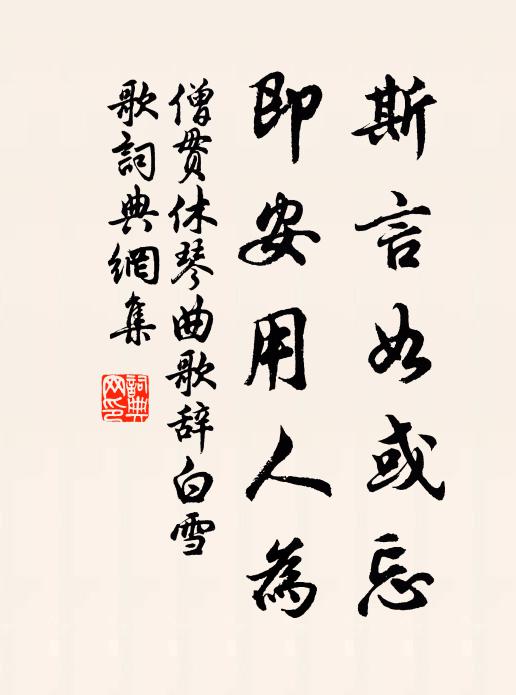 斯言如或忘
即安用人為
僧貫休琴曲歌辞白雪
歌詞典網集
詞典
网印